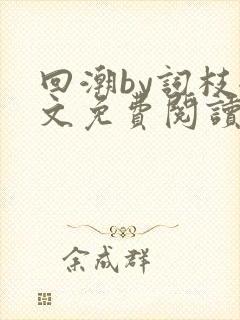 回潮by詞枝
文免費閱讀
余成群